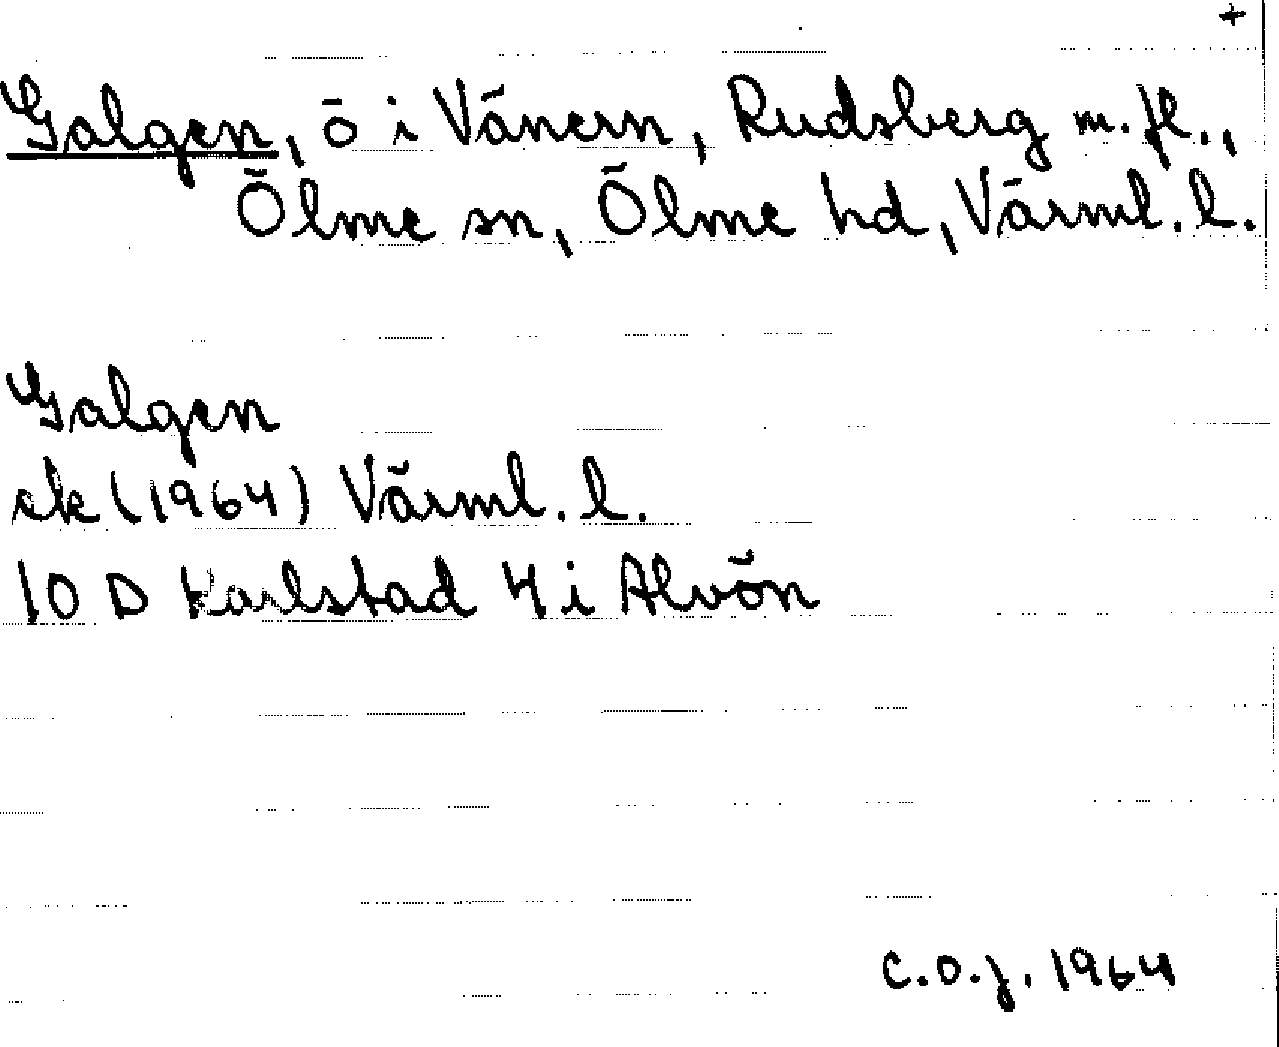 +
Galgen, ö i Vänern, Rudsberg m. fl.,
Ölme sn, Ölme hd, Värml. l.
Galgen
ek (1964) Värml. l.
10 D Karlstad 4 i Alvön
C.O.J. 1964